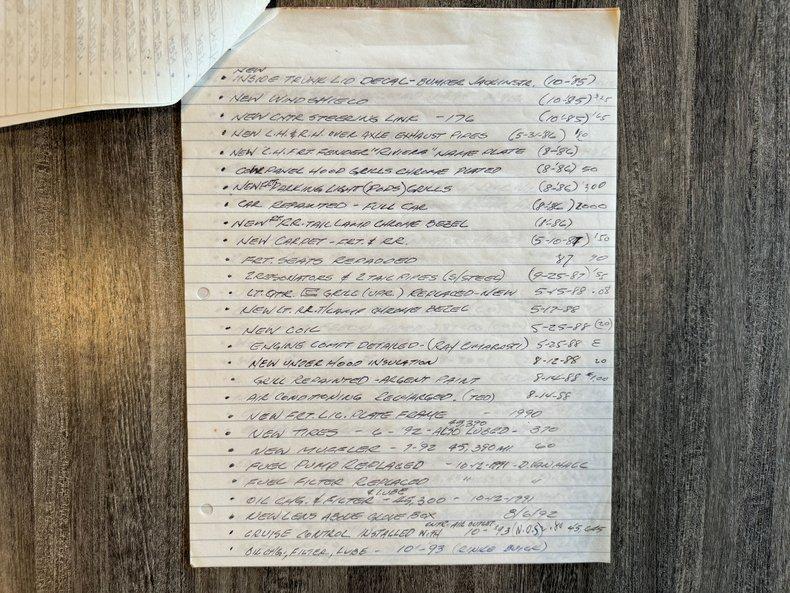 NEW
• INSIDE TRUNK LID DECAL - BUMPER JACK INSTR. (10-'85)
• NEW WINDSHIELD (10-'85)
• NEW CNTR STEERING LINK - 176 (10-'85)
• NEW L.H. & R.H. OVER AXLE EXHAUST PIPES (5-31-86)
• NEW L.H. FRT FENDER "RIVIERA" NAME PLATE (8-'86)
• COWL PANEL HOOD GRILLS CHROME PLATED (8-'86) 50
• NEW FRT PARKING LIGHT (PODS) GRILLS (8-'86) 300
• CAR REPAINTED - FULL CAR (8-'86) 2000
• NEW RT RR. TAIL LAMP CHROME BEZEL (8-'86)
• NEW CARPET - FRT. & RR. (5-10-87) 150
• FRT. SEATS REPADDED 87 90
• 2 RESONATORS & 2 TAIL PIPES (S/STEEL) (9-25-87)
• LT. QTR. GRILL REPLACED - NEW 5-15-88
• NEW LT. RR. T/LAMP CHROME BEZEL 5-17-88
• NEW COIL 5-25-88 (20)
• ENGINE COMPT DETAILED - (RAY CIMAROSTI) 5-25-88
• NEW UNDER HOOD INSULATION 8-12-88 20
• GRILL REPAINTED - ARGENT PAINT 8-14-88 $100
• AIR CONDITIONING RECHARGED. (TED) 8-14-88
• NEW FRT. LIC. PLATE FRAME - 1990
45,390
• NEW TIRES - 6 - 92 - ALSO LUBED - 370
• NEW MUFFLER - 7-92 45,390 MI 60
• FUEL PUMP REPLACED - 10-12-1991 - D. VAN HALL
• FUEL FILTER REPLACED " "
& LUBE
• OIL CHG. & FILTER - 45,300 - 10-12-1991
• NEW LENS ABOVE GLOVE BOX 8/6/92
CNTR. AIR OUTLET
• CRUISE CONTROL INSTALLED WITH 10-'93 (N.O.S.) 45,645
• OIL CHG, FILTER, LUBE - 10'-93 (RINKE BUICK)